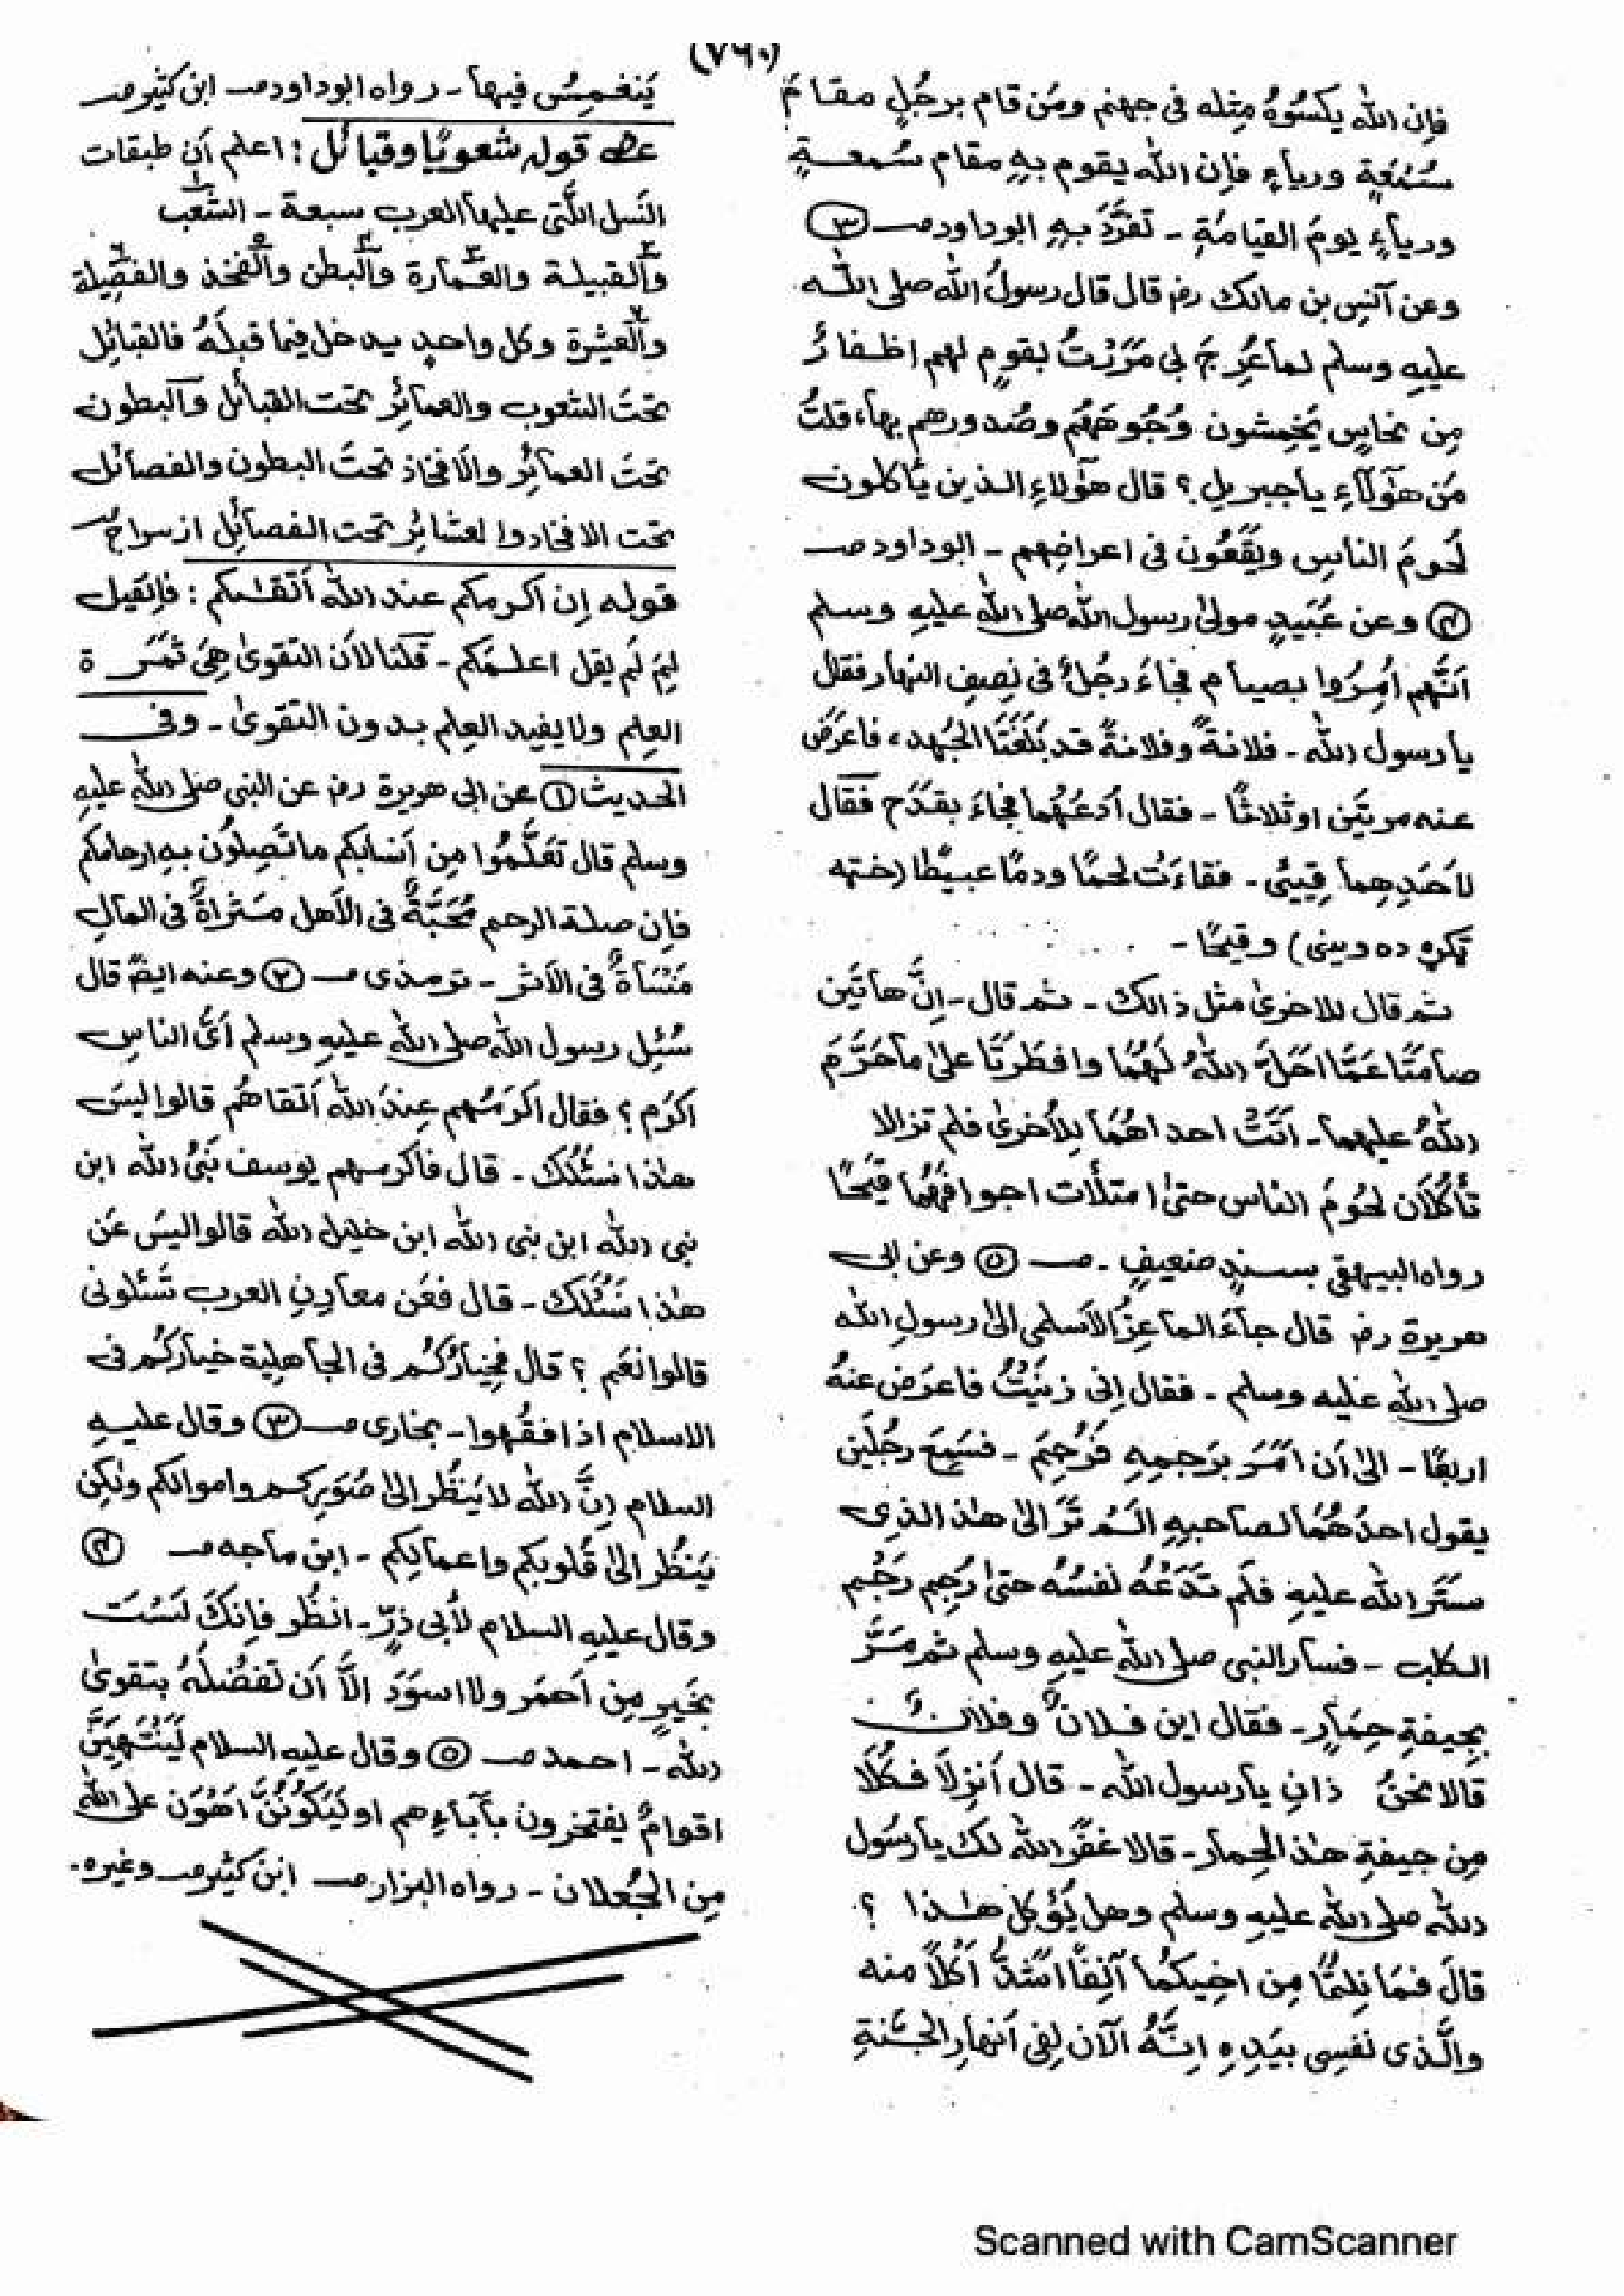 (٧٦٠)
فإن الله يكسُوهُ مِثله فى جهنم ومَن قام برجُلٍ مقامَ
سُمْعَةٍ ورياءٍ فإن الله يقوم بهٖ مقام سُمعةٍ
ورياءٍ يومَ القيامَةِ - تفرَّدَ بهٖ ابوداود صـ ③
وعن اَنَسِ بن مالك رضـ قال قال رسولُ الله صلى الله
عليهِ وسلم لما عُرِجَ بى مَرَرْتُ بقومٍ لهم اظفارٌ
مِن نحاسٍ يَخمِشون وُجُوهَهُم وصُدورهم بها، قلتُ
مَن هٰٓؤلآءِ ياجبريل ؟ قال هٰؤلاءِ الذين يأكلون
لُحومَ الناسِ ويَقَعُون فى اعراضِهم - ابوداود صـ
④ وعن عُبَيدٍ مولىٰ رسول الله صلى الله عليهِ وسلم
اَنَّهم اُمِرُوا بصيام فجاءَ رجُلٌ فى نِصفِ النهار فقال
يا رسول الله - فلانةً وفلانةً قد بَلَغَتَا الجُهد، فاعرَضَ
عنه مرتَين اوثلاثًا - فقال اُدعُهُما فجاءَ بقَدَح فقال
لاَحَدِهِما قِيئى - فقاءَت لحمًا ودمًا عبيطًا (خته
تكره ده وينى) وقيحًا -
ثم قال للاخرىٰ مثل ذالك - ثم قال - اِنَّ هاتَين
صامتَا عَمَّا احَلَّ اللهُ لَهُمَا وافطَرتَا علىٰ ماحَرَّمَ
اللهُ عليهما - اَتَتْ احداهُمَا لِلاُخرىٰ فلم تزالا
تأكُلاَن لُحُومَ الناس حتىٰ امتلأت اجوافهُما قَيحًا
رواه البيهقى بسندٍ ضعيفٍ - صـ ⑤ وعن ابى
هريرة رضـ قال جآءَ الماعِزُ الاَسلمى الىٰ رسولِ الله
صلى الله عليه وسلم - فقال اِنى زنَيْتُ فاعرَض عنهُ
اربعًا - الىٰ اَن اَمَرَ برَجمِهِ فَرُجِمَ - فسَمِعَ رجُلَين
يقول احدُهُمَا لصاحبهٖ اَلَم تَرَ الىٰ هٰذ الذِى
سَتَرَ الله عليهِ فلَم تَدَعْهُ نفسُهُ حتىٰ رُجِم رَجْم
الكلب - فسار النبى صلى الله عليهِ وسلم ثم مَرَّ
بِجِيفةِ حِمَارٍ - فقال اين فلانٌ وفلانٌ
قالا نحنُ ذانِ يارسول الله - قال اَنزِلاَ فكُلَا
مِن جيفةِ هٰذ الحِمار - قالا غفَر الله لك يا رسُول
الله صلى الله عليهِ وسلم وهل يُؤكل هٰذا ؟
قالَ فمَا نِلتُمَا مِن اخِيكُما آنِفًا اَشَدُّ اَكْلاً منه
والَّذى نَفسِى بيَدِهٖ اِنَّهُ اَلآن لفِى اَنهارِ الجَنةِ
يَنغمِسُ فيها - رواه ابوداود صـ ابن كثير صـ
قوله شعوبًا وقبائل : اعلم اَن طبقات
النَسل الَّتى عليها العرب سبعة - الشعب
والقبيلة والعمارة والبطن والفخذ والفصيلة
والعشيرة وكل واحدٍ يدخل فيما قبلَهُ فالقبائِل
تحتَ الشعوب والعمائِر تحت القبائل والبطون
تحتَ العمائِر والاَفخاذ تحتَ البطون والفصائل
تحت الافخاد والعشائِر تحت الفصائِل از سراج صـ
قوله اِن اكرمكم عند الله اَتقٰكم : فاِنقيل
لِمَ لَم يقل اعلمَكم - قلنا لاَن التقوىٰ هِىَ ثمَرة
العِلم ولايفيد العِلم بدون التقوىٰ - وفى
الحديث ① عن ابى هريرة رضـ عن النبى صلى الله عليهِ
وسلم قال تَعَلَّمُوا مِن اَنسابكم ماتَصِلُون بهٖ ارحامكم
فاِن صلة الرحم مُحَبَّةٌ فى الاَهل مَثراةٌ فى المالِ
مَنْسَأةٌ فى الاَثر - ترمذى صـ ② وعنه ايضً قال
سُئِل رسول الله صلى الله عليهِ وسلم اَىُّ الناسِ
اكرَم ؟ فقال اكرَمُهم عِندَ الله اَتقاهُم قالوا ليسَ
هٰذا نسئَلُك - قال فاكرمهم يوسف نَبىُّ الله ابن
نبى الله ابن نبى الله ابن خليل الله قالوا ليسَ عَن
هٰذا نسْئَلُك - قال فعَن معادِنِ العرب تَسْئلونى
قالوا نعَم ؟ قال فخِيارُكُم فى الجاهلِية خيارُكُم فى
الاسلام اذا فقُهوا - بخارى صـ ③ وقال عليهِ
السلام اِنَّ الله لايَنظُر الىٰ صُوَرِكم واموالكم ولٰكِن
يَنظُر الىٰ قُلوبِكم واعمالِكم - ابن ماجه صـ ④
وقال عليهِ السلام لاَبى ذرٍّ - انظُر فاِنكَ لَسْتَ
بخَيرٍ مِن اَحمَر ولا اسوَدَ اِلاَّ اَن تَفضُلَهُ بتقوىٰ
الله - احمد صـ ⑤ وقال عليهِ السلام لَيَنْتَهِيَنَّ
اقوامٌ يفتخرون بآباءِهم اولَيَكُوْنُنَّ اَهْوَن على الله
مِن الجُعلان - رواه البزار صـ ابن كثير صـ وغيره.
Scanned with CamScanner